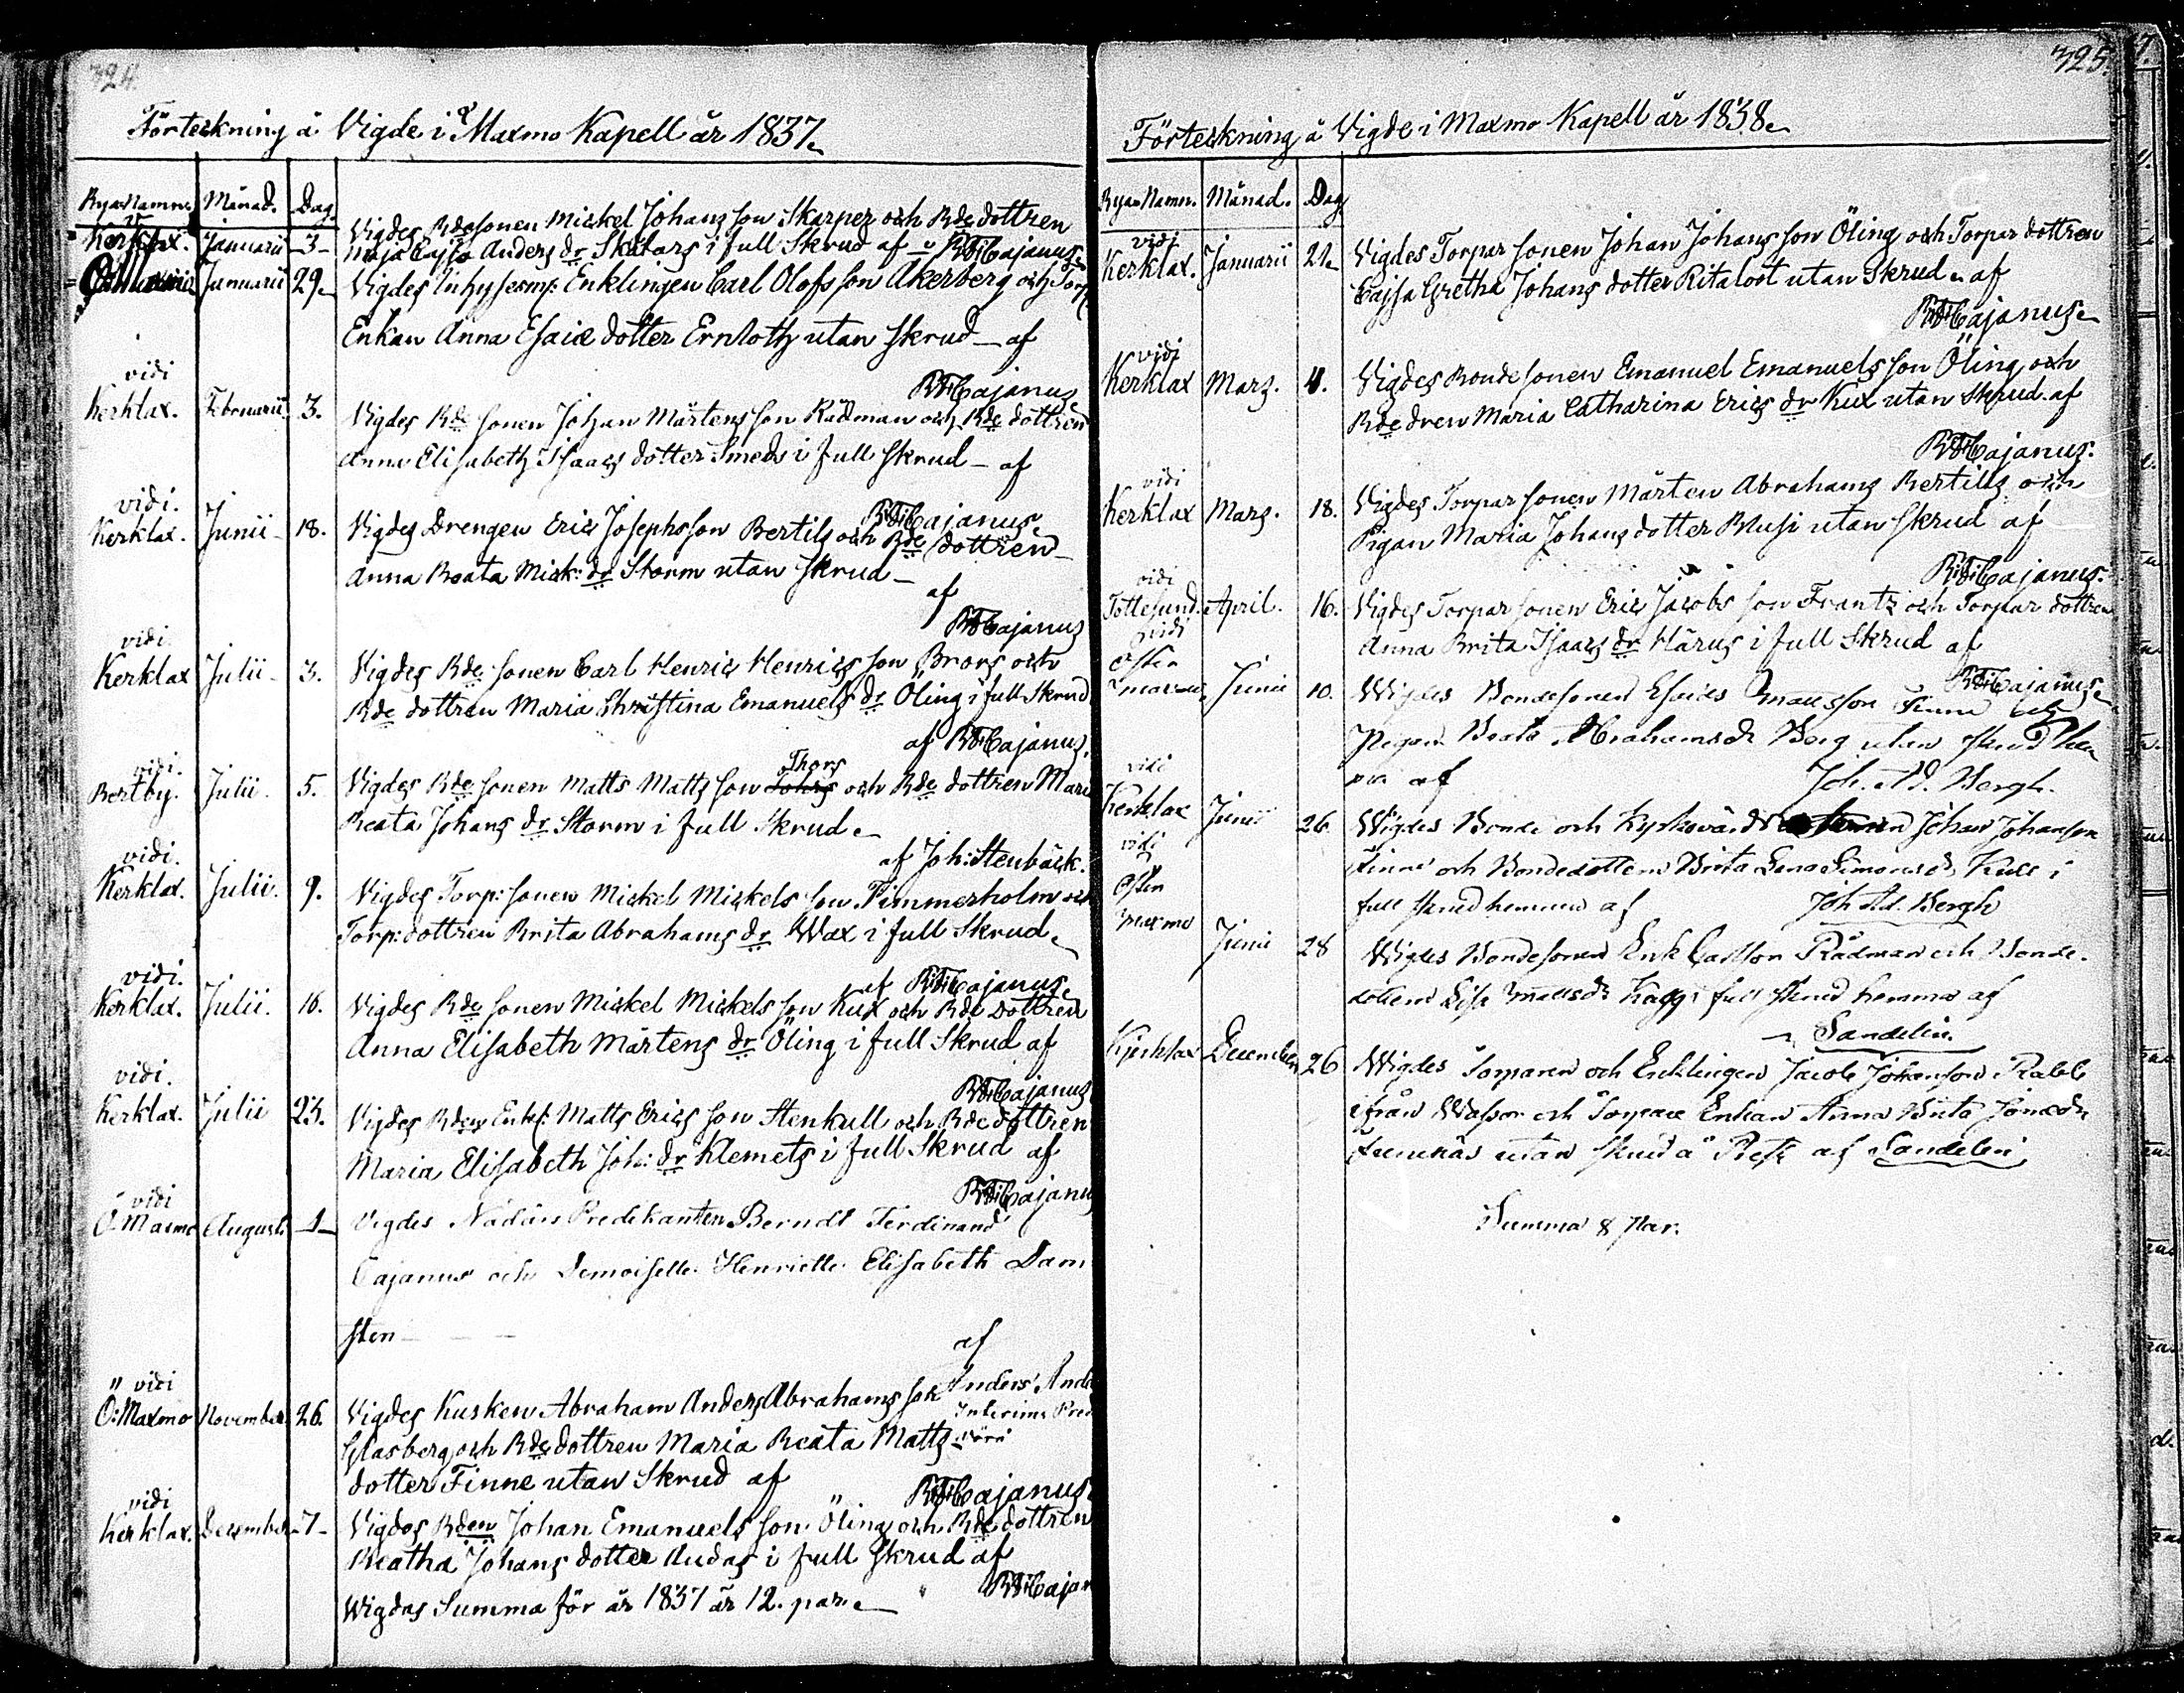 324.
Förteckning å Vigde i Maxmo Kapell år 1837.
Bya Namn. Månad. Dag.
Kerklax. Januarii 3 Vigdes Bdesonen Mickel Johans son Skarper och Bde dottren
Maja Cajsa Anders dr Skatars i full Skrud af BFCajanus
Januarii 29. Vigdes Inhyses Enklingen Carl Olofs son Åkerberg och Torp
Enkan Anna Esaiæ dotter Ernloth utan Skrud – af
BFCajanus
vidi
Kerklax. Februarii 3. Vigdes Bde sonen Johan Mårtens son Rådman och Bde dottren
Anna Elisabeth Isaacs dotter Smeds i full Skrud – af
BFCajanus.
vidi.
Kerklax. Junii 18. Vigdes Drengen Eric Josephsson Bertils och Bde dottren
Anna Beata Mick: dr Storm utan Skrud –
af
BFCajanus
vidi.
Kerklax Julii 3. Vigdes Bde sonen Carl Henric Henrics son Brors och
Bde dottren Maria Christina Emanuels dr Öling i full Skrud
af BFCajanus.
vidi.
Bertby. Julii. 5. Vigdes Bde sonen Matts Matts son Thors och Bde dottren Maria
Beata Johans dr Storm i full Skrud.
af Joh: Stenbäck.
vidi.
Kerklax. Julii. 9. Vigdes Torp: sonen Mickel Mickels son Timmerholm och
Torp: dottren Brita Abrahams dr Wax i full Skrud.
af BFCajanus.
vidi.
Kerklax. Julii. 16. Vigdes Bde sonen Mickel Mickels son Kux och Bde dottren
Anna Elisabeth Mårtens dr Öling i full Skrud af
BFCajanus
vidi.
Kerklax. Julii 23. Vigdes Bden Enkl: Matts Erics son Stenkull och Bde dottren
Maria Elisabeth Joh: dr Klemets i full Skrud af
BFCajanus
vidi
Ö. Maxmo Augusti 1 Vigdes Nådårs Predikanten Berndt Ferdinand
Cajanus och Demoiselle Henriette Elisabeth Dam
sten – – – af
Anders And
Interims Pred
Vörå
vidi
Ö: Maxmo November 26. Vigdes Kusken Abraham Anders Abrahams son
Glasberg och Bde dottren Maria Beata Matts
dotter Finne utan Skrud af
BFCajanus
vidi
Kerklax. December 7 Vigdes Bden Johan Emanuels son Öling och Bde dottren
Beatha Johans dotter Audas i full Skrud af
BFCajan
Wigdas Summa för år 1837 är 12. par.
325.
Förteckning å Vigde i Maxmo Kapell år 1838.
Bya Namn. Månad. Dag
vidi
Kerklax. Januarii 21. Vigdes Torpar sonen Johan Johans son Öling och Torpar dottren
Cajsa Gretha Johans dotter Ritaloot utan Skrud af
BFCajanus
vidi
Kerklax Mars. 4. Vigdes Bonde sonen Emanuel Emanuels son Öling och
Bde dren Maria Catharina Erics dr Kux utan Skrud af
BFCajanus.
vidi
Kerklax Mars. 18. Vigdes Torpar sonen Mårten Abrahams Bertills och
Pigan Maria Johans dotter Blusi utan Skrud af
BFCajanus.
vidi
Tottesund. April. 16. Vigdes Torpar sonen Eric Jacobs son Frantz och Torpar dottren
Anna Brita Isaacs dr Härus i full Skrud af
BFCajanus.
vidi
Öster
maxmo Junii 10. Wigdes Bondesonen Esaias Mattsson Finne och
Pigan Beata Abrahamsdr Berg utan skrud hem
ma af Joh. Ad. Bergh.
vidi
Kerklax Junii 26 Wigdes Bonde och Kyrkovärds Johan Johansson
Finne och Bondedottern Brita Lena Simonsdr Kull i
full skrud hemma af Joh Ad. Bergh
vidi
Öster
maxmo Junii 28 Wigdes Bondesonen Erik Carlsson Rådman och Bonde-
dottern Lisa Mattsdr Kagg i full skrud hemma af
Sandelin.
Kjerklax December 26 Wigdes Torparen och Enklingen Jacob Johansson Rabb
ifrån och Torpare Enkan Anna Brita
utan skrud å af Sandelin
Summa 8 Par.